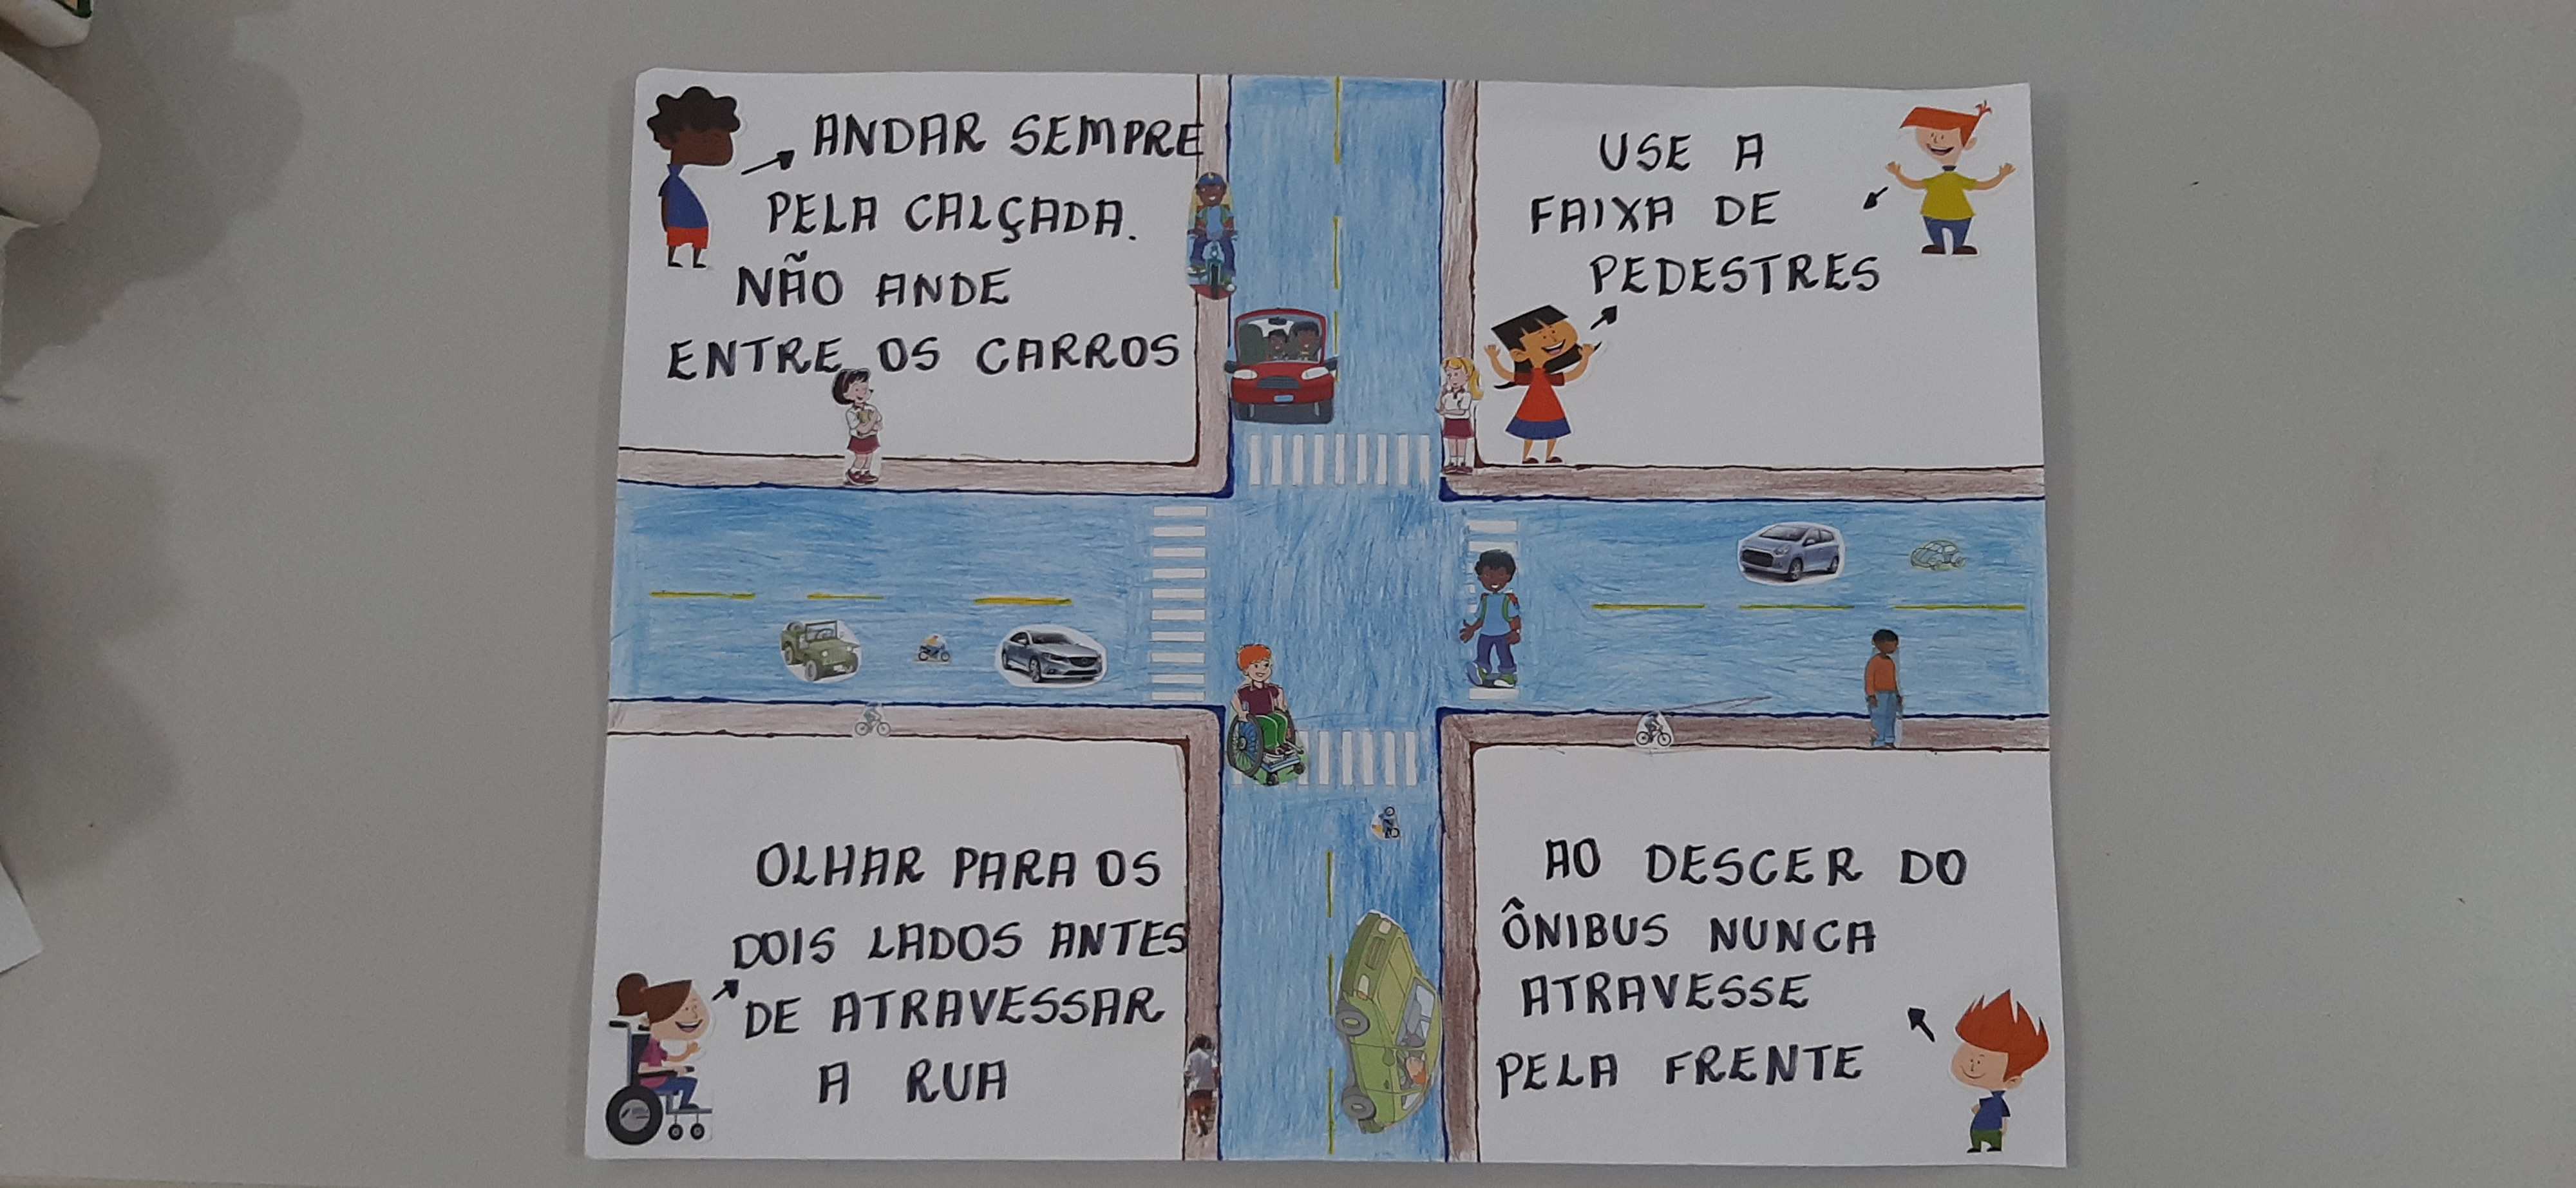 ANDAR SEMPRE
PELA CALÇADA.
NÃO ANDE
ENTRE OS CARROS
USE A
FAIXA DE
PEDESTRES
OLHAR PARA OS
DOIS LADOS ANTES
DE ATRAVESSAR
A RUA
AO DESCER DO
ÔNIBUS NUNCA
ATRAVESSE
PELA FRENTE